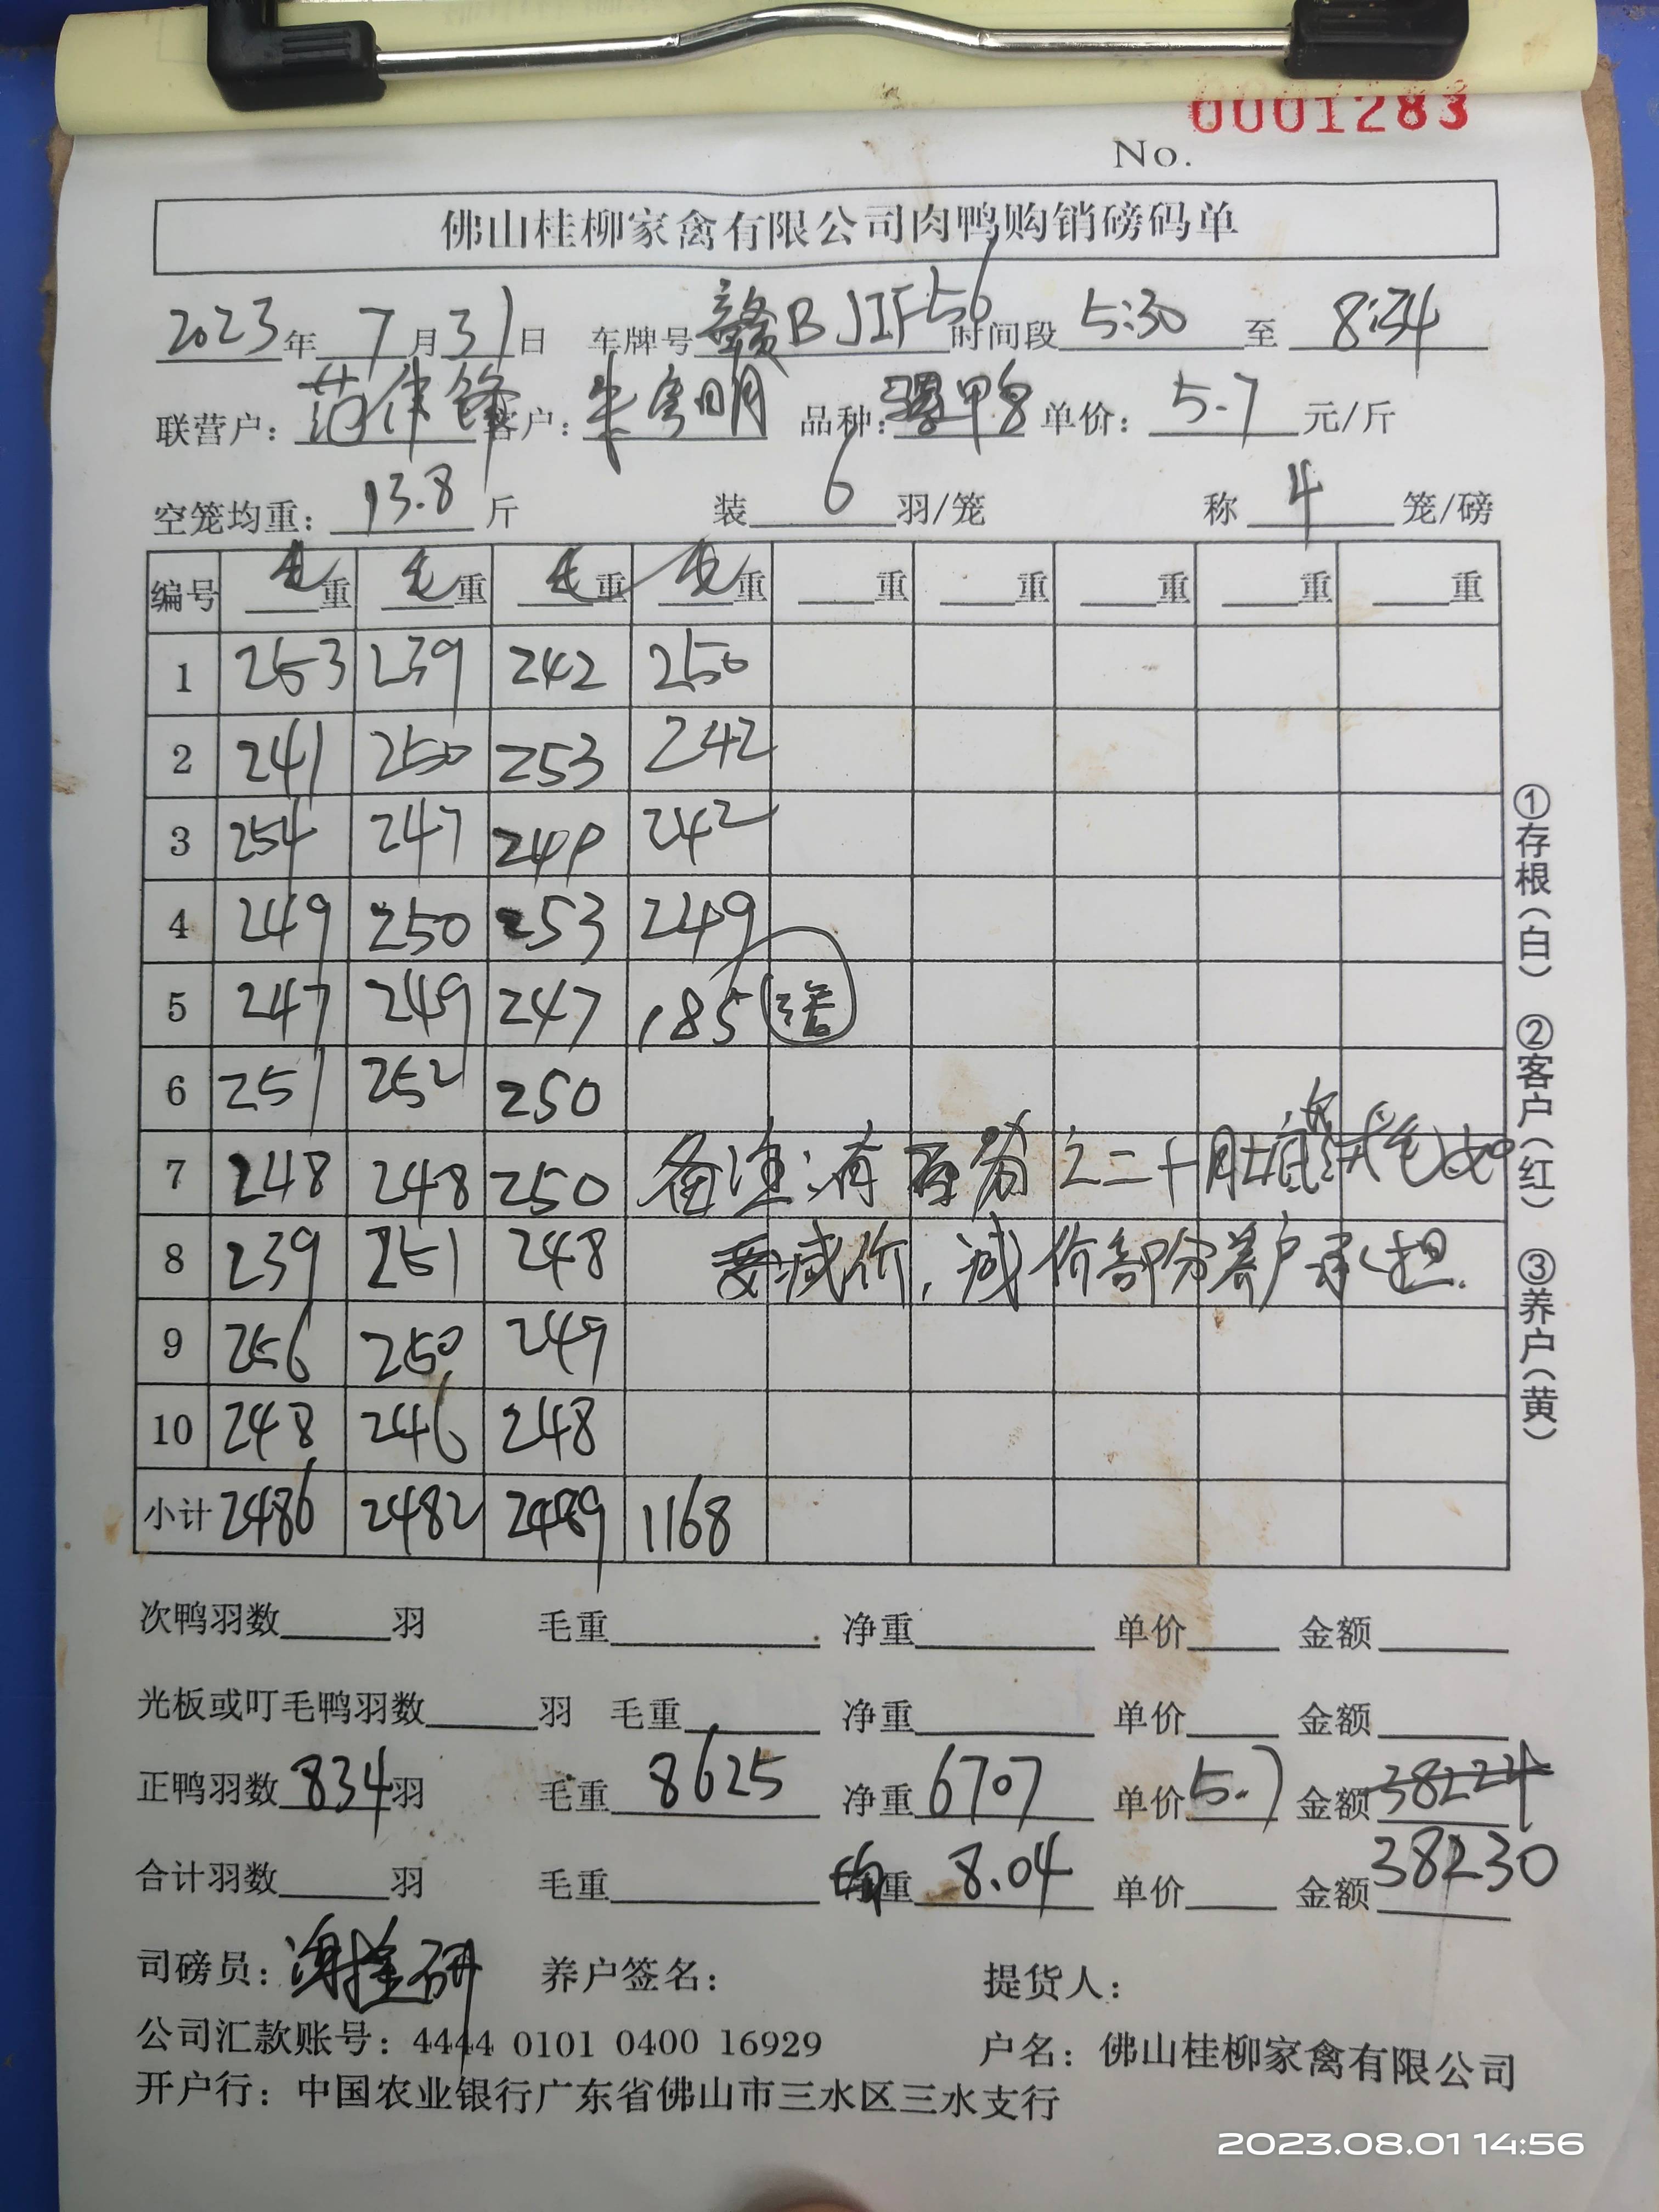 0001283
No.
佛山桂柳家禽有限公司肉鸭购销磅码单
2023年 7月31日 车牌号 赣BJIF56 时间段 5:30 至 8:34
联营户: 范伟锋 客户: 朱粤明 品种: 鸭 单价: 5.7 元/斤
空笼均重: 13.8 斤 装 6 羽/笼 称 4 笼/磅
编号 毛重 毛重 毛重 毛重 重 重 重 重 重
1 253 239 242 250
2 241 250 253 242
3 254 247 249 242
4 249 250 253 249
5 247 249 247 185
6 251 252 250
7 248 248 250 备注:有百分之二十
8 239 251 248 要减价,减价部分养户承担.
9 256 250 249
10 248 246 248
小计 2486 2482 2489 1168
①存根(白) ②客户(红) ③养户(黄)
次鸭羽数 羽 毛重 净重 单价 金额
光板或叮毛鸭羽数 羽 毛重 净重 单价 金额
正鸭羽数 834 羽 毛重 8625 净重 6707 单价 5.7 金额 38224
合计羽数 羽 毛重 均重 8.04 单价 金额 38230
司磅员: 养户签名: 提货人:
公司汇款账号: 4444 0101 0400 16929 户名: 佛山桂柳家禽有限公司
开户行: 中国农业银行广东省佛山市三水区三水支行
2023.08.01 14:56